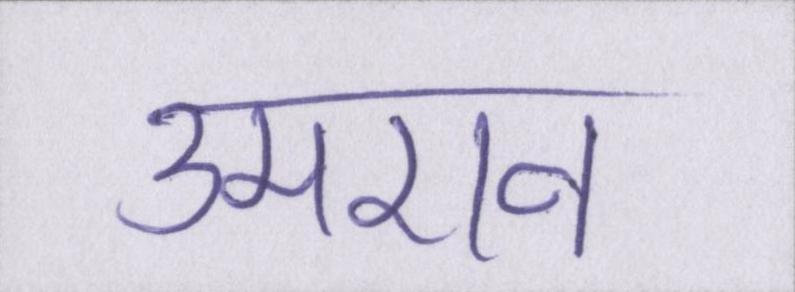 उमराव